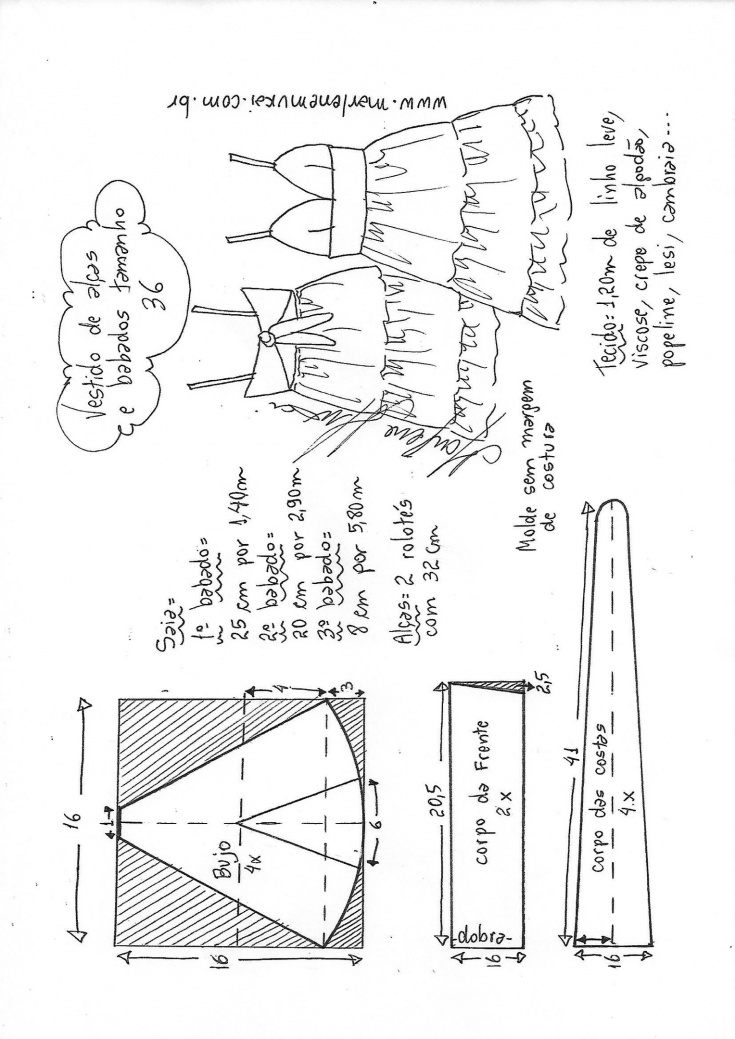 Vestido de alças
e babados tamanho
36
www.marlenemukai.com.br
Saia=
1º babado=
25 cm por 1,40m
2º babado=
20 cm por 2,90m
3º babado=
8 cm por 5,80m
Alças= 2 rolotés
com 32 cm
Molde sem margem
de costura
Tecido= 1,20m de linho leve,
viscose, crepe de algodão,
popeline, lesi, cambraia...
16
1
4
3
Bujo
4x
6
16
20,5
corpo da Frente
2x
-dobra-
16
2,5
41
corpo das costas
4x
16